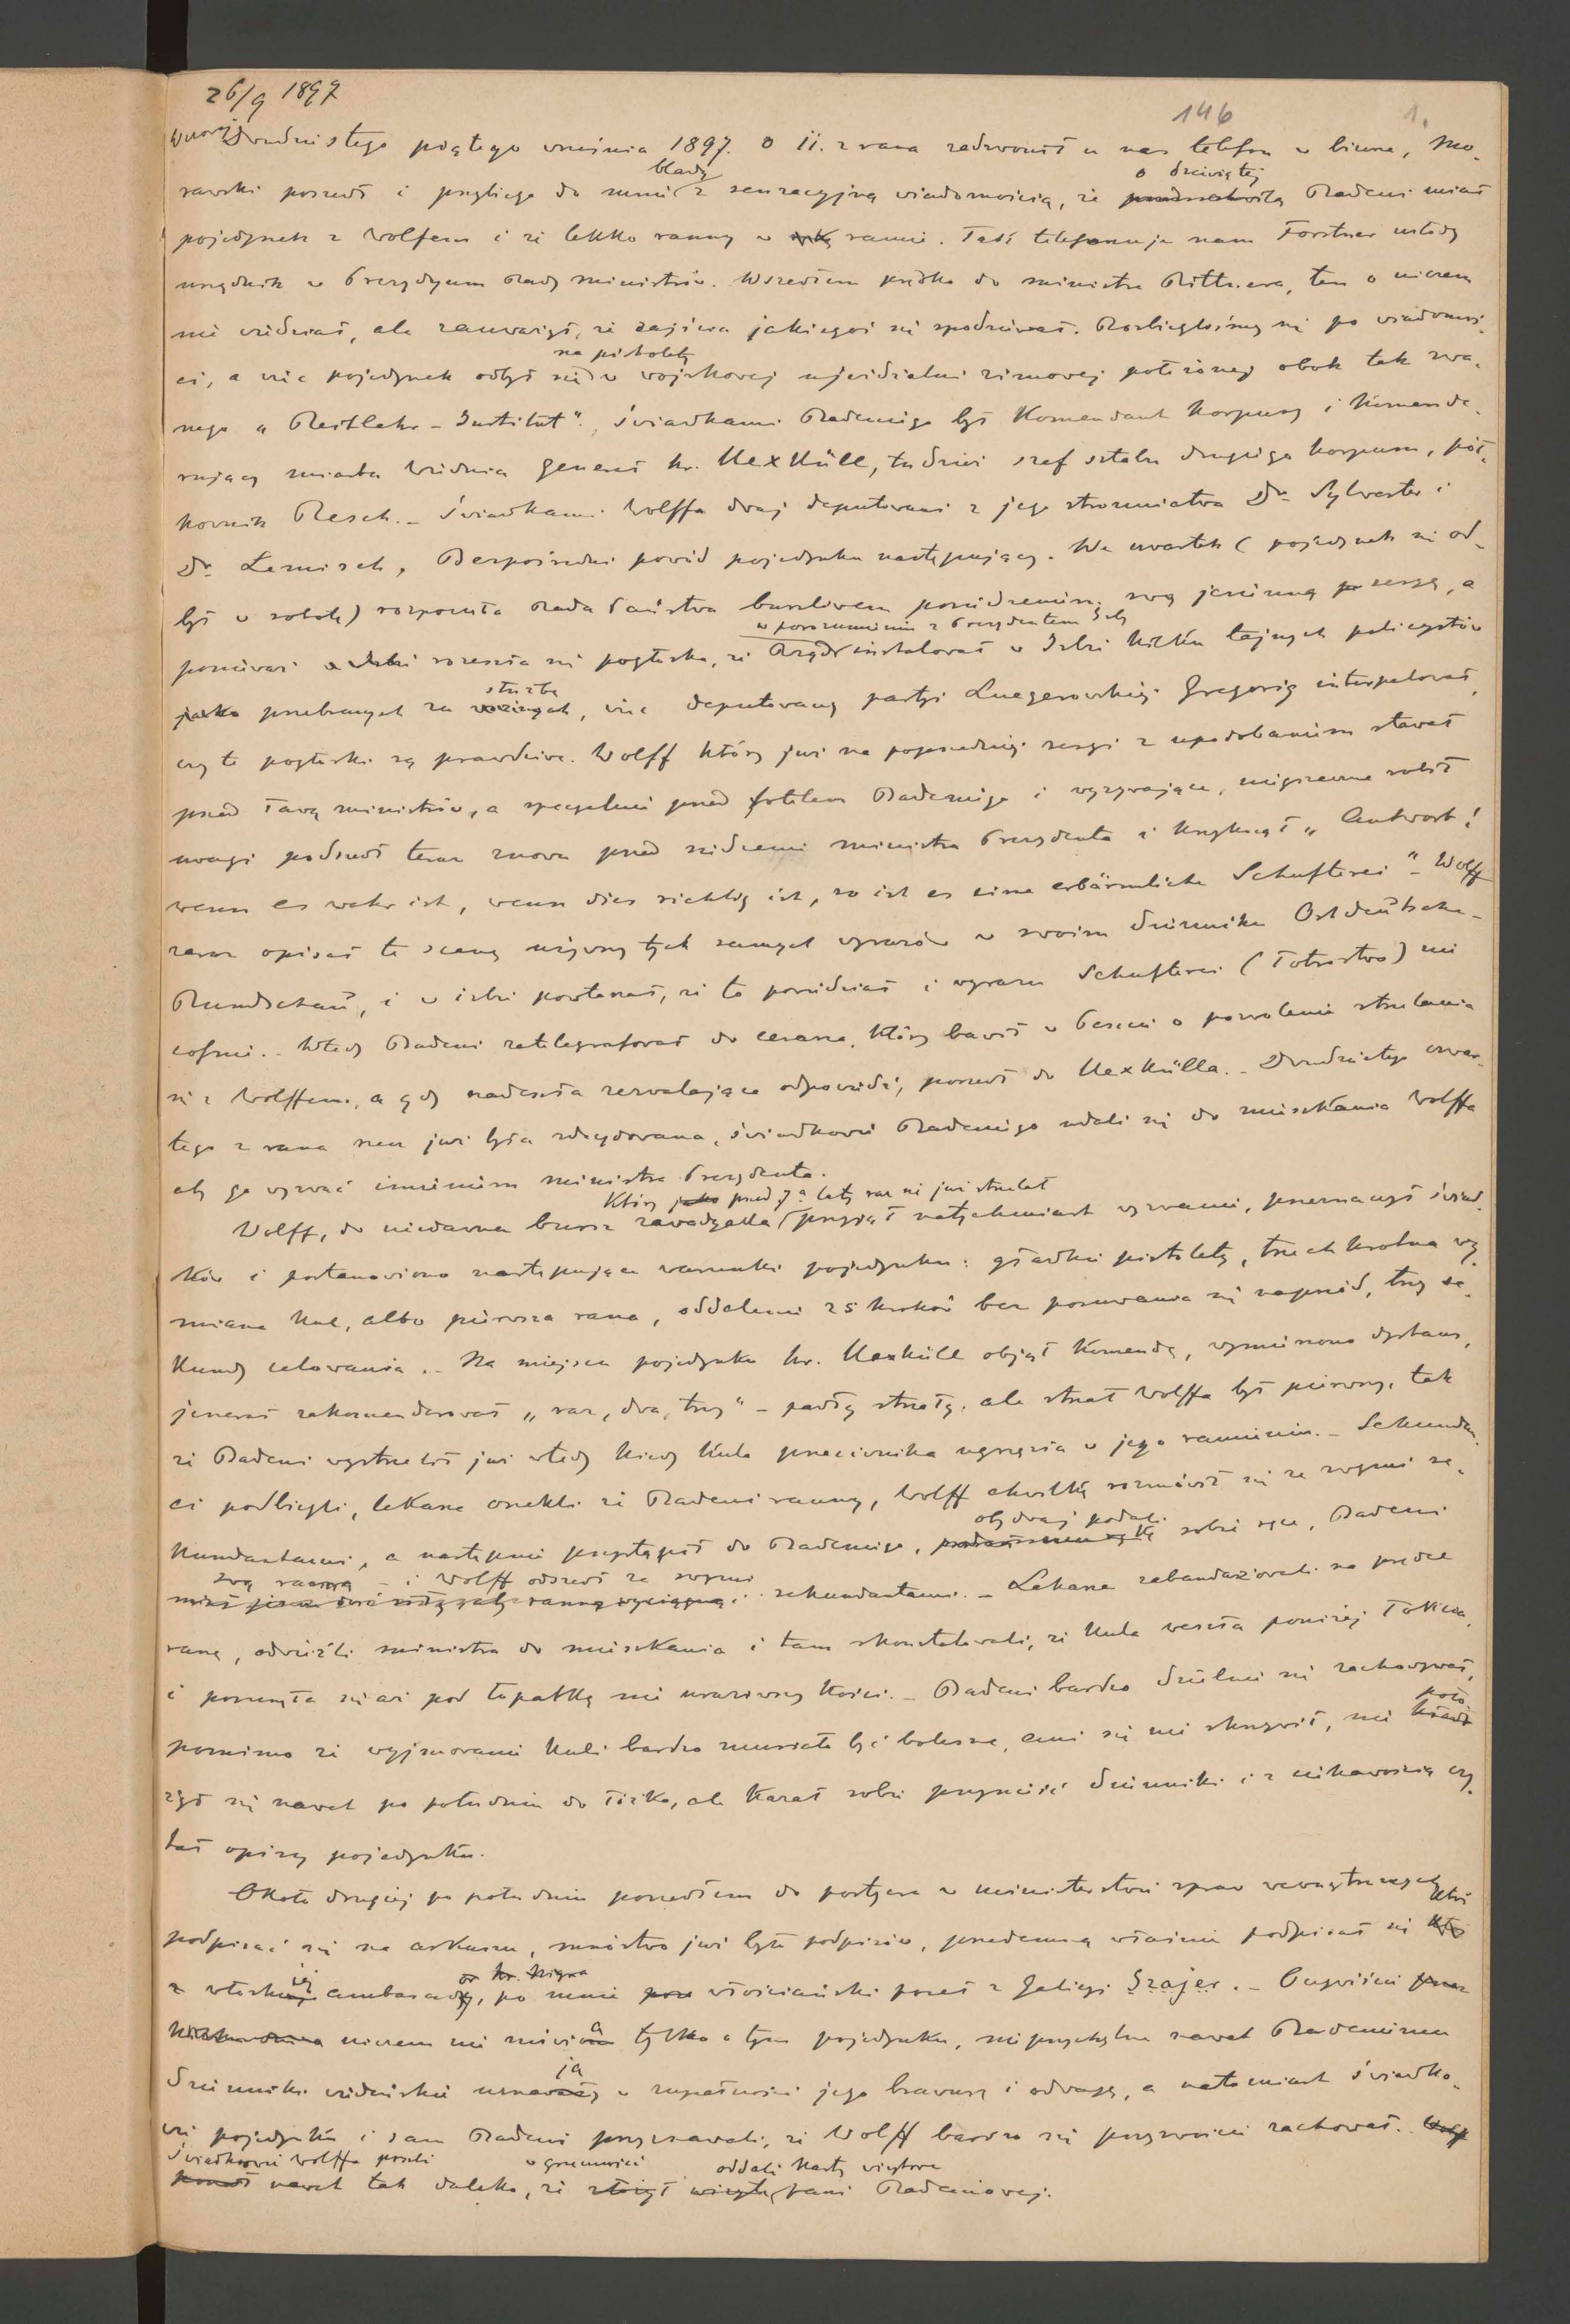 26/9 1897
146 1.
Wczoraj Dwudziestego piątego września 1897. o 11. z rana zadzwonił u nas telefon w biurze, Mo-
rawski poszedł i przybiega do mnie blady z senzacyjną wiadomością, że o dziewiątej Badeni miał
pojedynek z Wolfem i że lekko ranny w ramie. Taki telefonuje nam Forstner młody
urzędnik w Prezydyum Rady ministrów. Wszedłem prędko do ministra Rittnera, ten o niczem
nie wiedział, ale zauważył, że zajścia jakiegoś się spodziewał. Rozbiegliśmy się po wiadomoś-
ci, a więc pojedynek odbył się na pistolety w wojskowej ujeżdżalni zimowej położonej obok tak zwa-
nego „Reitlehr-Institut“. Świadkami Badeniego był Komendant Korpusu i Komende-
rujący miasta Wiednia generał hr. Uexküll, tudzież szef sztabu drugiego korpusu, puł-
kownik Resch. - Świadkami Wolffa dwaj deputowani z jego stronnictwa Dr. Sylvester i
Dr. Lemisch. Bezpośredni powód pojedynku następujący. We czwartek (pojedynek się od-
był w sobotę) rozpoczęła Rada Państwa burzliwem posiedzeniem swą jesienną sesyę, a
ponieważ rozeszła się pogłoska, że Rząd w porozumieniu z Prezydentem Izby instalował w Izbie kilku tajnych policyantów
przebranych za służbę, więc deputowany partyi Luegerowskiej Gregorig interpelował,
czy te pogłoski są prawdziwe. Wolff który już na poprzedniej sesyi z upodobaniem stawał
przed ławą ministrów, a specyalnie przed fotelem Badeniego i wyzywające, niegrzeczne robił
uwagi podszedł teraz znowu przed siedzenie ministra Prezydenta i krzyknął „Antwort!
wenn es wahr ist, wenn dies richtig ist, so ist es eine erbärmliche Schufterei“ - Wolff
zaraz opisał tę scenę używszy tych samych wyrazów w swoim dzienniku Ostdeutsche-
Rundschau, i w izbie powtarzał, że to powiedział i wyrazu Schufterei (Łotrostwo) nie
cofnie. - Wtedy Badeni zatelegrafował do cesarza, który bawił w Peszcie o pozwolenie strzelania
się z Wolffem, a gdy nadeszła zezwalająca odpowiedź, poszedł do Uexkülla. - Dwudziestego czwar-
tego z rana rzecz już była zdecydowana, świadkowie Badeniego udali się do mieszkania Wolffa
aby go wyzwać imieniem ministra Prezydenta.
Wolff, do niedawna bursz zawadyaka, który przed 7a laty raz się już strzelał przyjął natychmiast wyzwanie, przeznaczył świad-
ków i postanowiono następujące warunki pojedynku: gładkie pistolety, trzechkrotna wy-
miana kul, albo pierwsza rana, oddalenie 25 kroków bez posuwania się naprzód, trzy se-
kundy celowania. - Na miejscu pojedynku hr. Uexküll objął komendę, wymierzono dystans,
jenerał zakomenderował „raz, dwa, trzy“ - padły strzały, ale strzał Wolffa był pierwszy, tak
że Badeni wystrzelił już wtedy kiedy kula przeciwnika ugrzęzła w jego ramieniu. - Sekundan-
ci podbiegli, lekarze orzekli że Badeni ranny, Wolff chwilkę rozmówił się ze swymi se-
kundantami, a następnie przystąpił do Badeniego, obydwaj podali sobie ręce, Badeni
swą ranną - i Wolff odszedł ze swymi sekundantami. - Lekarze zabandażowali na prędce
ranę, odwieźli ministra do mieszkania i tam skonstatowali, że kula weszła poniżej łokcia,
i posunęła się aż pod łopatkę nie uraziwszy kości. - Badeni bardzo dzielnie się zachowywał,
pomimo że wyjmowanie kuli bardzo musiało być bolesne, ani się nie skrzywił, nie poło-
żył się nawet po południu do łóżka, ale kazał sobie przynieść dzienniki i z ciekawością czy-
tał opisy pojedynku.
Około drugiej po południu poszedłem do portyera w ministerstwie spraw wewnętrznych
podpisać się na arkuszu, mnóstwo już było podpisów, przedemną właśnie podpisał się ktoś
z włoskiej ambasady, po mnie włościański poseł z Galicyi Szajer. - Oczywiście
niczem nie mówią tylko o tym pojedynku, nieprzychylne nawet Badeniemu
dzienniki wiedeńskie uznają w zupełności jego brawurę i odwagę, a natomiast świadko-
wie pojedynku i sam Badeni przyznawali, że Wolff bardzo się przyzwoicie zachował.
Świadkowie Wolffa poszli nawet tak daleko, że w grzeczności oddali karty wizytowe pani Badeniowej.